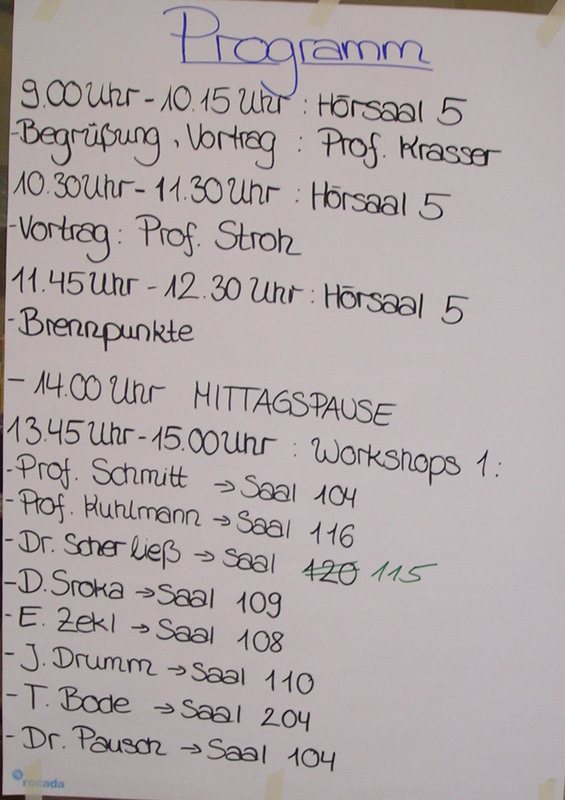 Programm
9.00 Uhr - 10.15 Uhr : Hörsaal 5
- Begrüßung , Vortrag : Prof. Krasser
10.30 Uhr - 11.30 Uhr : Hörsaal 5
- Vortrag : Prof. Stroh
11.45 Uhr - 12.30 Uhr : Hörsaal 5
- Brennpunkte
- 14.00 Uhr MITTAGSPAUSE
13.45 Uhr - 15.00 Uhr : Workshops 1 :
- Prof. Schmitt → Saal 104
- Prof. Kuhlmann → Saal 116
- Dr. Scherließ → Saal 120 115
- D. Sroka → Saal 109
- E. Zekl → Saal 108
- J. Drumm → Saal 110
- T. Bode → Saal 204
- Dr. Pausch → Saal 104
rocada